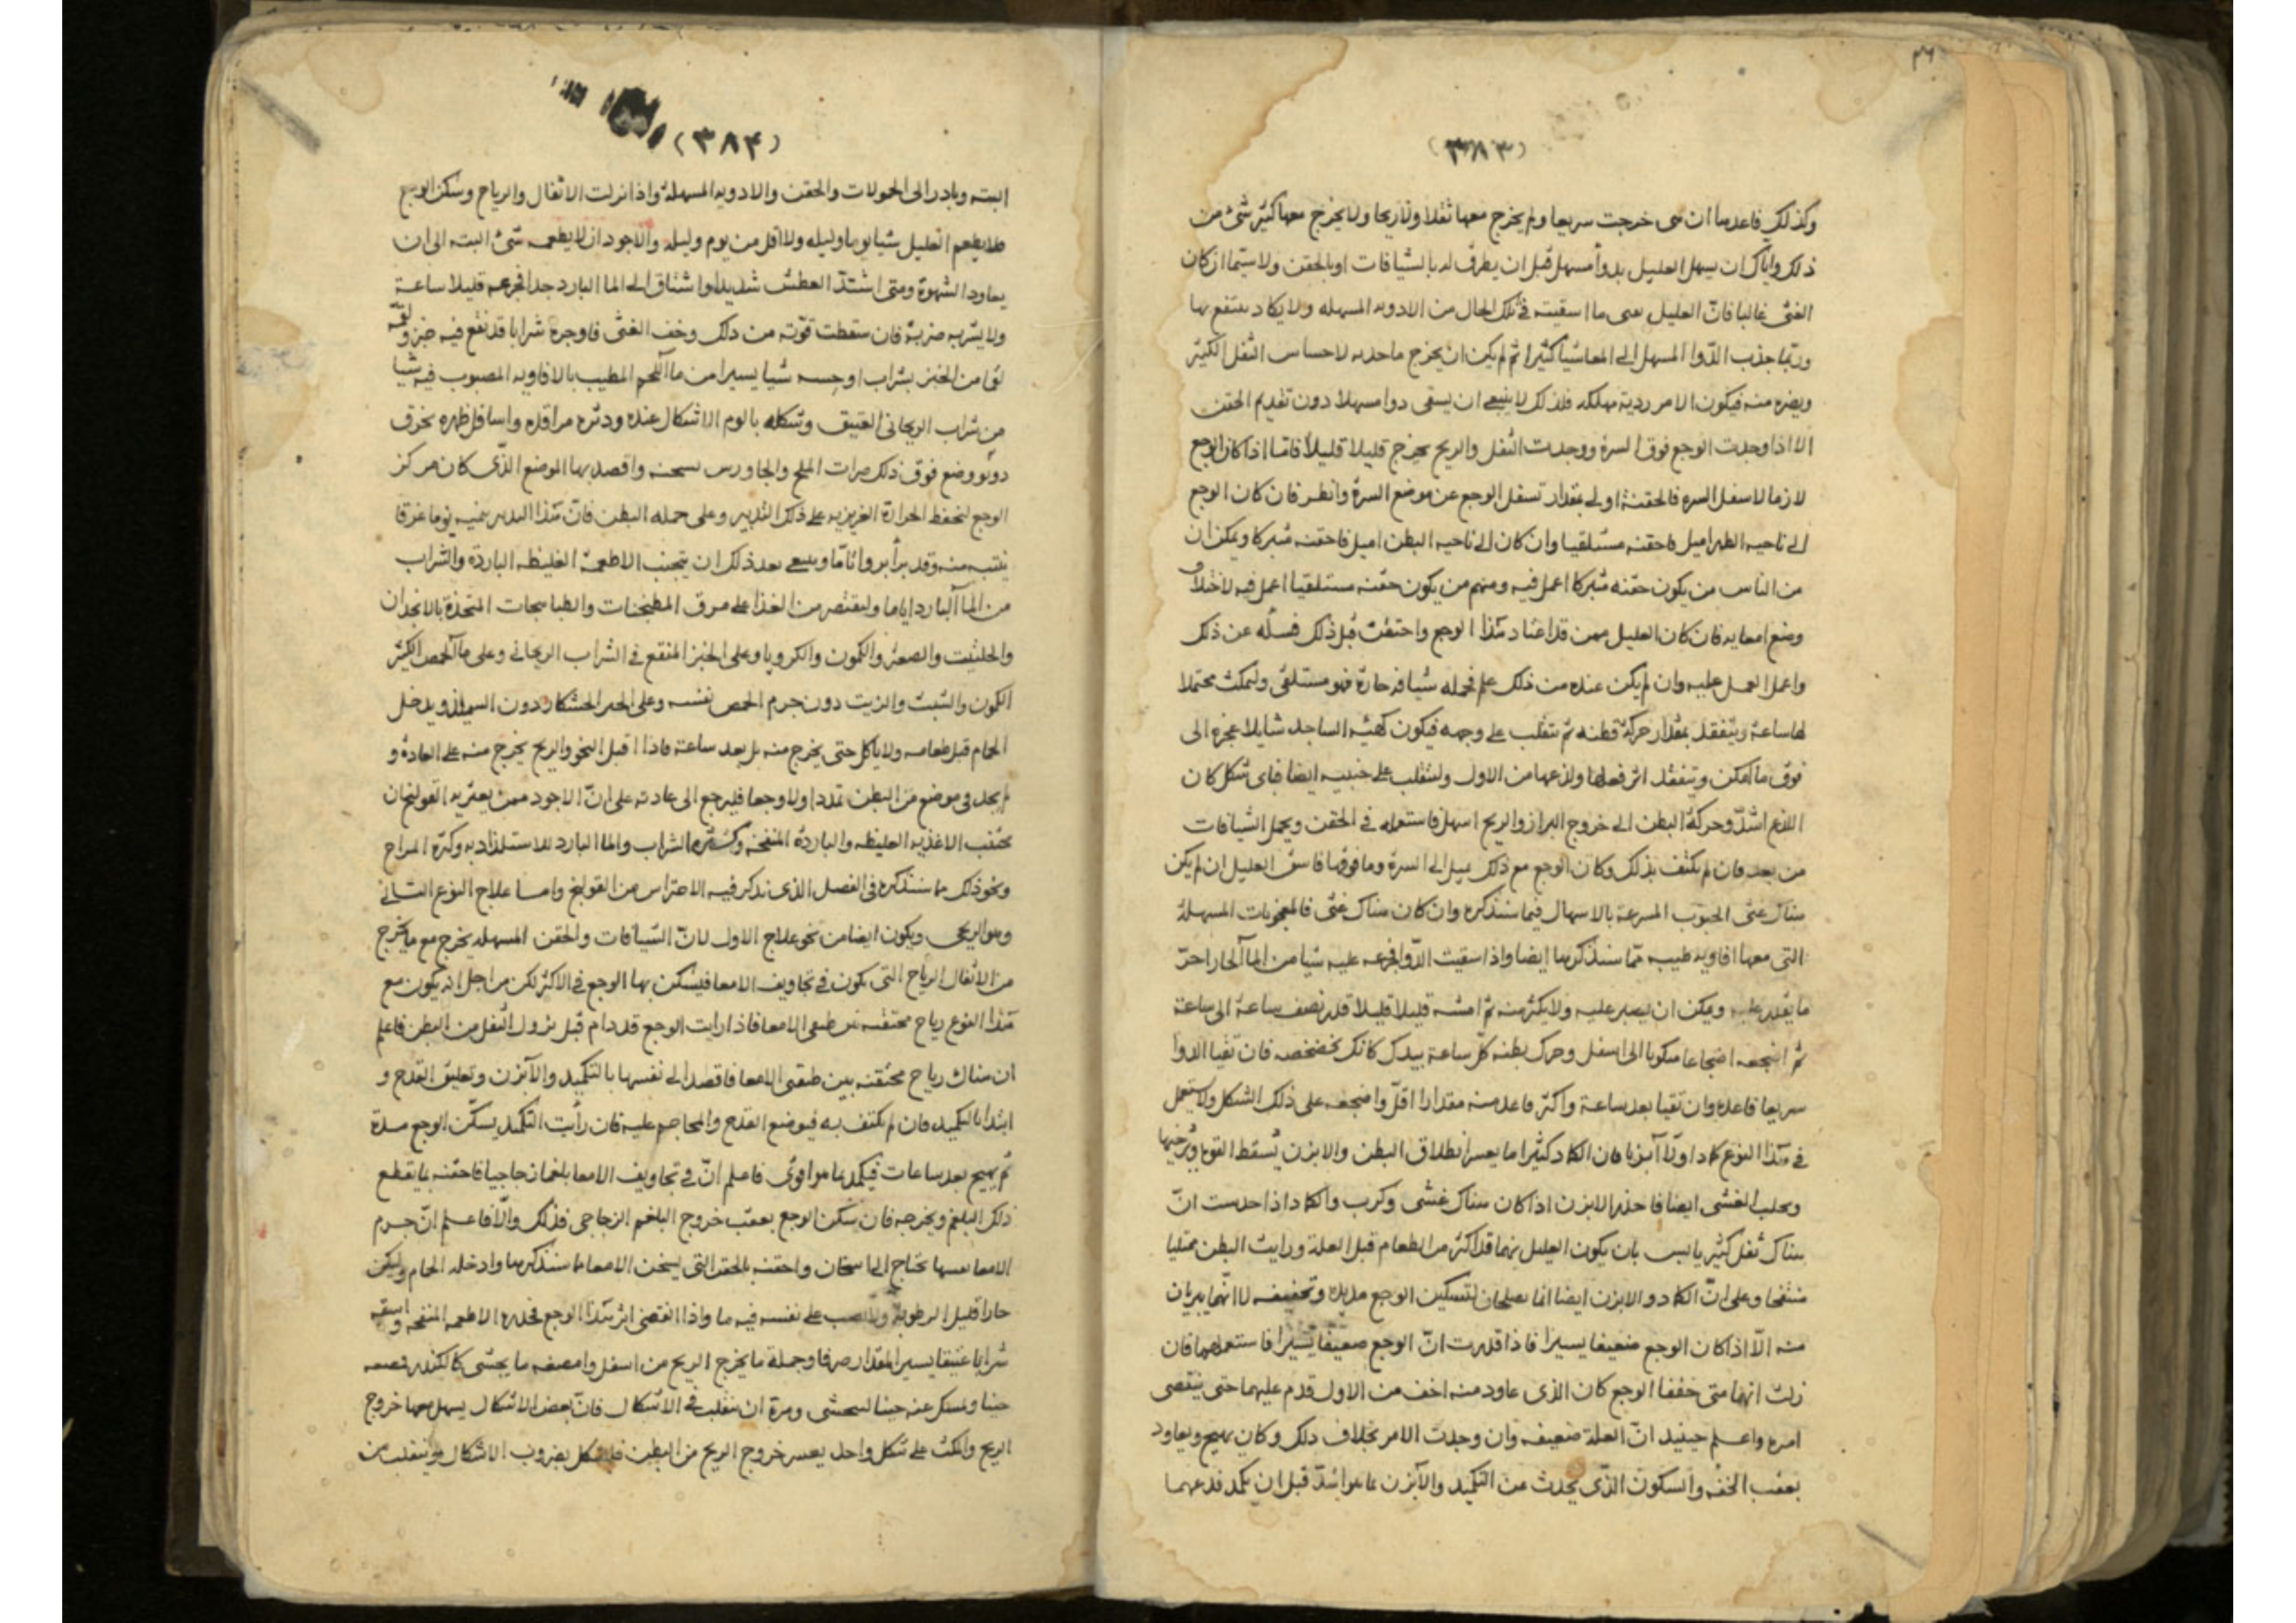 ٤٦
(٣٨٣)
وكذلك فاعدها ان هى خرجت سريعا ولم يخرج معها ثفلا ولا ريحا ولا يخرج معها كثير شئ من
ذلك واياك ان يسهل العليل بدوآ مسهل قبل ان يطرق له بالشيافات او بالحقن ولا سيما ان كان
الغثى غالبا فان العليل يقى ما اسقيته فى تلك الحال من الادويه المسهله ولا يكاد ينتفع بها
وربما جذب الدوا المسهل الى المعا شيا كثيرا ثم لم يكن ان يخرج ما جذبه لاحساس الثفل الكثير
ويضره منه فيكون الامر ردية مهلكه فلذلك لا ينبغى ان يسقى دوا مسهلا دون تقديم الحقن
الا اذا وجدت الوجع فوق السرة ووجدت الثفل والريح يخرج قليلا قليلا فاما اذا كان الوجع
لازما لاسفل السره فالحقنة اولى بمقدار تسفل الوجع عن موضع السرة وانظر فان كان الوجع
الى ناحيه الظهر اميل فاحقنه مستلقيا وان كان الى ناحيه البطن اميل فاحقنه متبركا ويمكن ان
من الناس من يكون حقنه متبركا اعمل فيه ومنهم من يكون حقنه مستلقيا اعمل فيه لاختلاف
وضع امعايه فان كان العليل ممن قد اعتاد هذا الوجع واحتقن قبل ذلك فسله عن ذلك
واعمل العمل عليه وان لم يكن عنده من ذلك علم فحمله شيافه حارة فهو مستلقى وليمكث محتملا
لها ساعة ويتفقد مقدار حركة قطنه ثم يتقلب على وجهه فيكون كهيئه الساجد شايلا عجزه الى
فوق ما امكن ويتفقد اثر فعلها ولذعها من الاول وليتقلب على جنبيه ايضا فاى شكل كان
اللذع اشد وحركة البطن الى خروج البراز والريح اسهل فاستعمله فى الحقن ويحمل الشيافات
من بعد فان لم يكتف بذلك وكان الوجع مع ذلك يميل الى السرة وما فوقها فاسق العليل ان لم يكن
هناك غثى الحبوب المسرعة بالاسهال فيما سنذكره وان كان هناك غثى فالمعجونات المسهلة
التى معها افاويه طيبه مما سنذكرها ايضا واذا سقيت الدوا فجرعه عليه شيا من المآ الحار احر
ما يقدر عليه ويمكن ان يصبر عليه ولا يكثر منه ثم امشه قليلا قليلا قدر نصف ساعة الى ساعة
ثم اضجعه اضجاعا منكوبا الى اسفل وحرك بطنه كل ساعة بيدك كانك تخضخضه فان تقيا الدوا
سريعا فاعده وان تقيا بعد ساعة واكثر فاعد منه مقدارا اقل واضجعه على ذلك الشكل ولا تستعمل
فى هذا النوع كمادا ولا آبزنا فان الكماد كثيرا ما يعسر انطلاق البطن والابزن يسقط القوة ويرخيها
ويجلب الغشى ايضا فاحذر الابزن اذا كان هناك غشى وكرب والكماد اذا حدست ان
هناك ثفل كثير يابس بان يكون العليل نهما قد اكثر من الطعام قبل العلة ورايت البطن ممتليا
منتفخا وعلى ان الكماد والابزن ايضا انما يصلحان لتسكين الوجع مديدة وتخفيفه لا انهما يبريان
منه الا اذا كان الوجع ضعيفا يسيرا فاذا قدرت ان الوجع ضعيفا يسيرا فاستعملهما فان
رايت انهما متى خففا الوجع كان الذى عاود منه اخف من الاول فدم عليهما حتى ينقضى
امره واعلم حينيذ ان العلة ضعيفه وان وجدت الامر بخلاف ذلك وكان يهيج ويعاود
بعقب الخف والسكون الذى يحدث عن التكميد والآبزن بما هو اشد قبل ان يكمد فدعهما
(٣٨۴)
البته وبادر الى الحمولات والحقن والادويه المسهلة واذا نزلت الاثفال والرياح وسكن الوجع
فلا يطعم العليل شيا يوما وليله ولا اقل من يوم وليله والاجود ان لا يطعمه شئ البته الى ان
يعاود الشهوة ومتى اشتد العطش شديدا واشتاق الى المآ البارد جدا فجرعه قليلا ساعة
ولا يشربه ضربة فان سقطت قوته من ذلك وخف الغثى فاوجره شرابا قد نقع فيه خبز ولقمه
لقما من الخبز بشراب او حسه شيا يسيرا من مآ اللحم المطيب بالافاويه المصبوب فيه شيا
من شراب الريحانى العتيق وشكله بالوم الاشكال عنده ودثره مراقده واسافل ظهره بخرق
دونه ووضع فوق ذلك صرات الملح والجاورس يسخنه واقصد بها الموضع الذى كان مركز
الوجع لتحفظ الحرارة الغريزيه على ذلك التدبير وعلى حمله البطن فان هذا التدبير ينيمه نوما غرقا
ينتبه منه وقد برأ بروا تاما وينبغى بعد ذلك ان يتجنب الاطعمة الغليظه الباردة والشراب
من المآ البارد اياما وليقتصر من الغذا على مرق المطجنات والطباهجات المتخذة بالانجدان
والحلتيت والصعتر والكمون والكرويا وعلى الخبز المنقع فى الشراب الريحانى وعلى مآ الحمص الكثير
الكمون والشبث والزيت دون جرم الحمص نفسه وعلى الخبز الخشكار دون السميذ ويدخل
الحمام قبل طعامه ولا ياكل حتى يخرج منه بل بعد ساعة فاذا اقبل النجو والريح يخرج منه على العادة و
لم يجد فى موضع من البطن تمددا ولا وجعا فليرجع الى عادته على ان الاجود ممن يعتريه القولنج ان
يجتنب الاغذيه الغليظه والباردة المنفخه وكثرة الشراب والما البارد للاستلذاذ به وكثرة المزاج
ونحو ذلك مما سنذكره فى الفصل الذى نذكر فيه الاحتراس من القولنج واما علاج النوع الثانى
وهو الريحى ويكون ايضا من نحو علاج الاول لان الشيافات والحقن المسهله يخرج مع ما يخرج
من الاثفال الرياح التى يكون فى تجاويف الامعا فيسكن بها الوجع فى الاكثر لكن من اجل انه يكون مع
هذا النوع رياح محتقنه بين طبقتى الامعا فاذا رايت الوجع قد دام قبل نزول الثفل من البطن فاعلم
ان هناك رياح محتقنه بين طبقتى الامعا فاقصد الى نفسها بالتكميد والآبزن وتعليق القدح و
ابتدا بالتكميد فان لم يكتف به فبوضع القدح والمحاجم عليه فان رأيت التكميد يسكن الوجع مدة
ثم يهيج بعد ساعات فيكمد بما هو اقوى فاعلم ان فى تجاويف الامعا بلغما زجاجيا فاحقنه بما يقطع
ذلك البلغم ويخرجه فان سكن الوجع بعقب خروج البلغم الزجاجى فذلك والا فاعلم ان جرم
الامعا نفسها يحتاج الى اسخان واحقنه بالحقن التى يسخن الامعا مما سنذكرها وادخله الحمام وليكن
حارا قليل الرطوبة ولا يصب على نفسه فيه ما واذا انقضى اثر هذا الوجع فحذره الاطعمه المنفخه واسقه
شرابا عتيقا يسير المقدار صرفا وجملة ما يخرج الريح من اسفل وامضغه ما يجشى كالكندر نضعه
حينا وتمسك عنه حينا ليجشى ومره ان يتقلب فى الاشكال فان بعض الاشكال يسهل معها خروج
الريح والمكث على شكل واحد يعسر خروج الريح من البطن فليشكل بضروب الاشكال وينقلب من